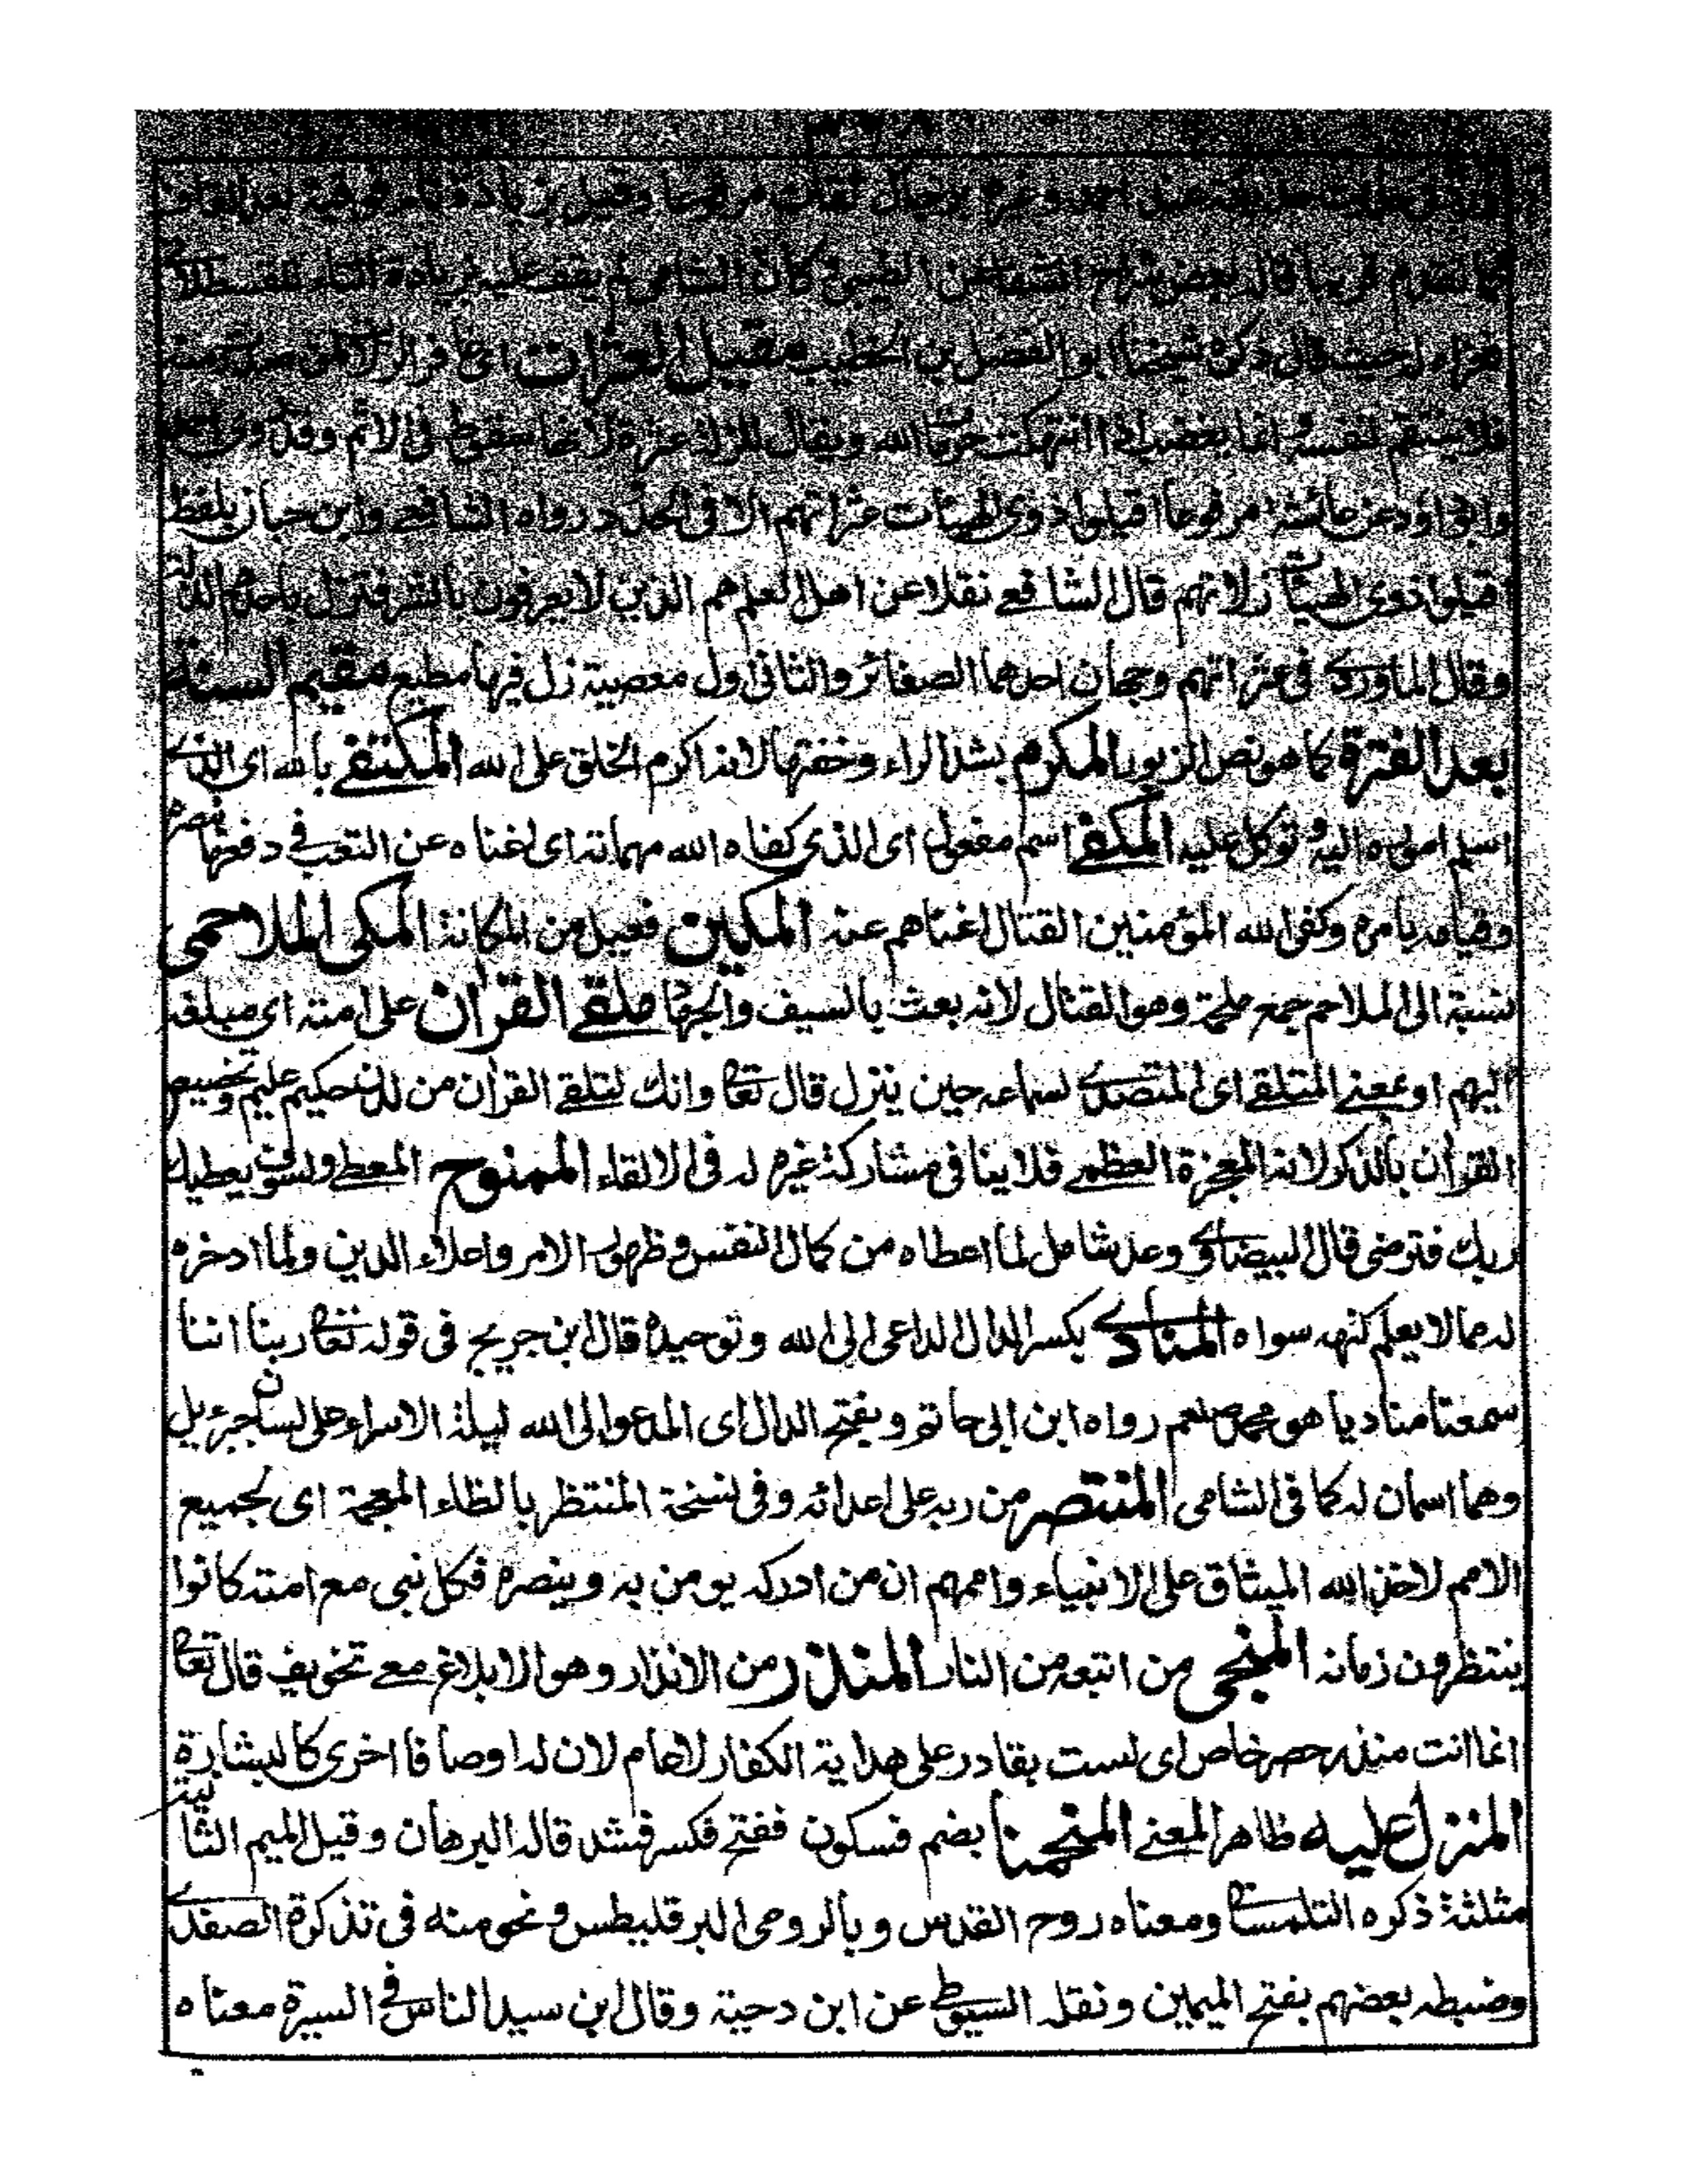 حذيفة عند احمد وغيره برجال ثقات مرفوعا وقيل بزيادة تاء فوقية بعد القاف
كما تقدم قريبا قاله بعض شراح الشفا عن الطيبي وكان الشامي لم يقف عليه بزيادة التاء
فعزاه له حيث قال ذكره شيخنا ابو الفضل بن الخطيب مقيل العثرات
فلا ينتقم لنفسه انما يغضب اذا انتهكت حرمات الله ويقال للزلة عثرة لانها سقوط في الاثم وقد روى احمد
وابو داود عن عائشة مرفوعا اقيلوا ذوى الهيئات عثراتهم الا في الحدود رواه الشافعي وابن حبان بلفظ
اقيلوا ذوى الهيئات زلاتهم قال الشافعي نقلا عن اهل العلم هم الذين لا يعرفون بالشر فتزل باحدهم الزلة
وقال الماوردي في عثراتهم وجهان احدهما الصغائر والثاني اول معصية زل فيها مطيع مقيم السنة
بعد الفترة كما هو نص الزبور المكرم بشد الراء وخفتها لانه اكرم الخلق على الله المكتفي بالله اى الذي
اسلم اموره اليه وتوكل عليه المكفي اسم مفعول اى الذى كفاه الله مهماته اى اغناه عن التعب في دفعها بنصره
وقيامه بامره وكفى الله المؤمنين القتال اغناهم عنه المكين فعيل من المكانة المكى الملاحمى
نسبة الى الملاحم جمع ملحمة وهو القتال لانه بعث بالسيف والجهاد ملقي القرآن على امته اى مبلغه
اليهم او بمعنى المتلقي اى المتصدي لسماعه حين ينزل قال تعا وانك لتلقى القرآن من لدن حكيم عليم وتخصيص
القرآن بالذكر لانه المعجزة العظمى فلا ينافى مشاركة غيره له في الالقاء الممنوح المعطى ولسوف يعطيك
ربك فترضى قال البيضاوي وعد شامل لما اعطاه من كمال النفس وظهور الامر واعلاء الدين ولما ادخره
له مما لا يعلم كنهه سواه المنادي بكسر الدال الداعى الى الله وتوحيده قال ابن جريج في قوله تعا ربنا اننا
سمعنا مناديا هو محمد صلعم رواه ابن ابى حاتم وبفتح الدال اى المدعو الى الله ليلة الاسراء على لسان جبريل
وهما اسمان له كما في الشامى المنتصر من ربه على اعدائه وفى نسخة المنتظر بالظاء المعجمة اى لجميع
الامم لاخذ الله الميثاق على الانبياء واممهم ان من ادركه يومن به وينصره فكل نبى مع امته كانوا
ينتظرون زمانه المنجى من اتبعه من النار المنذر من الانذار وهو الابلاغ مع تخويف قال تعا
انما انت منذر حصر خاص اى لست بقادر على هداية الكفار لا عام لان له اوصافا اخرى كالبشارة
المنزل عليه ظاهر المعنى المنحمنا بضم فسكون ففتح فكسر فشد قاله البرهان وقيل الميم الثانية
مثلثة ذكره التلمساني ومعناه روح القدس وبالرومى البرقليطس ونحو منه فى تذكرة الصفدي
وضبطه بعضهم بفتح الميمين ونقله السيوطي عن ابن دحية وقال ابن سيد الناس في السيرة معناه